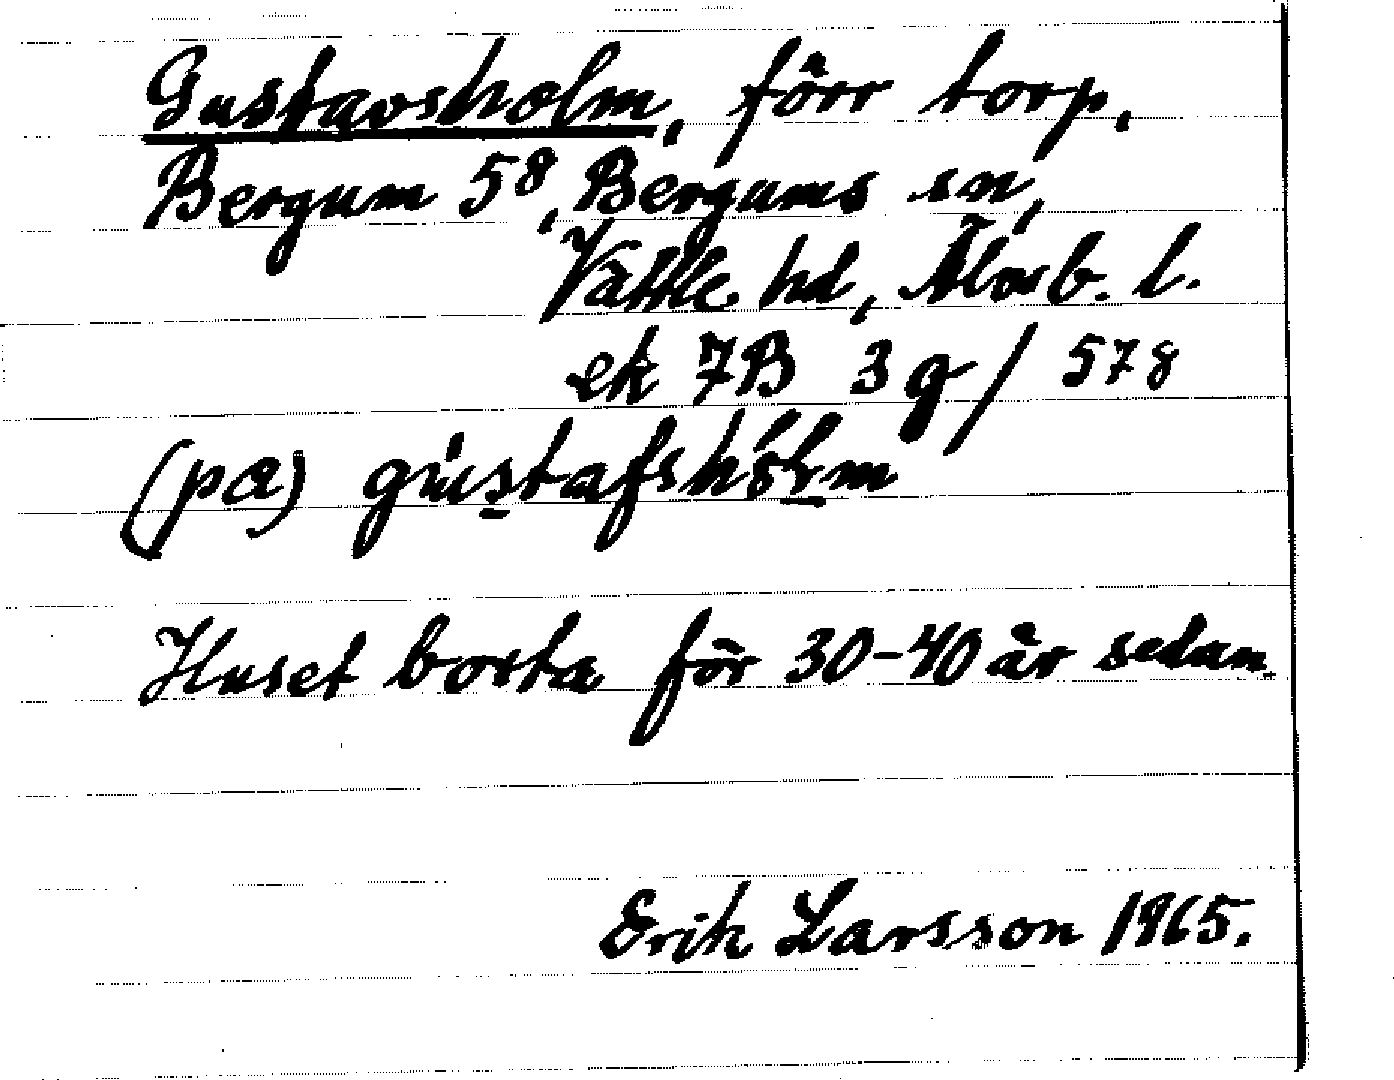 Gustavsholm, förr torp,
Bergum 5⁸, Bergums sn,
Vättle hd, Älvsb. l.
ek 7B 3g/578
(pa) gustafshòlm
Huset borta för 30-40 år sedan.
Erik Larsson 1965.